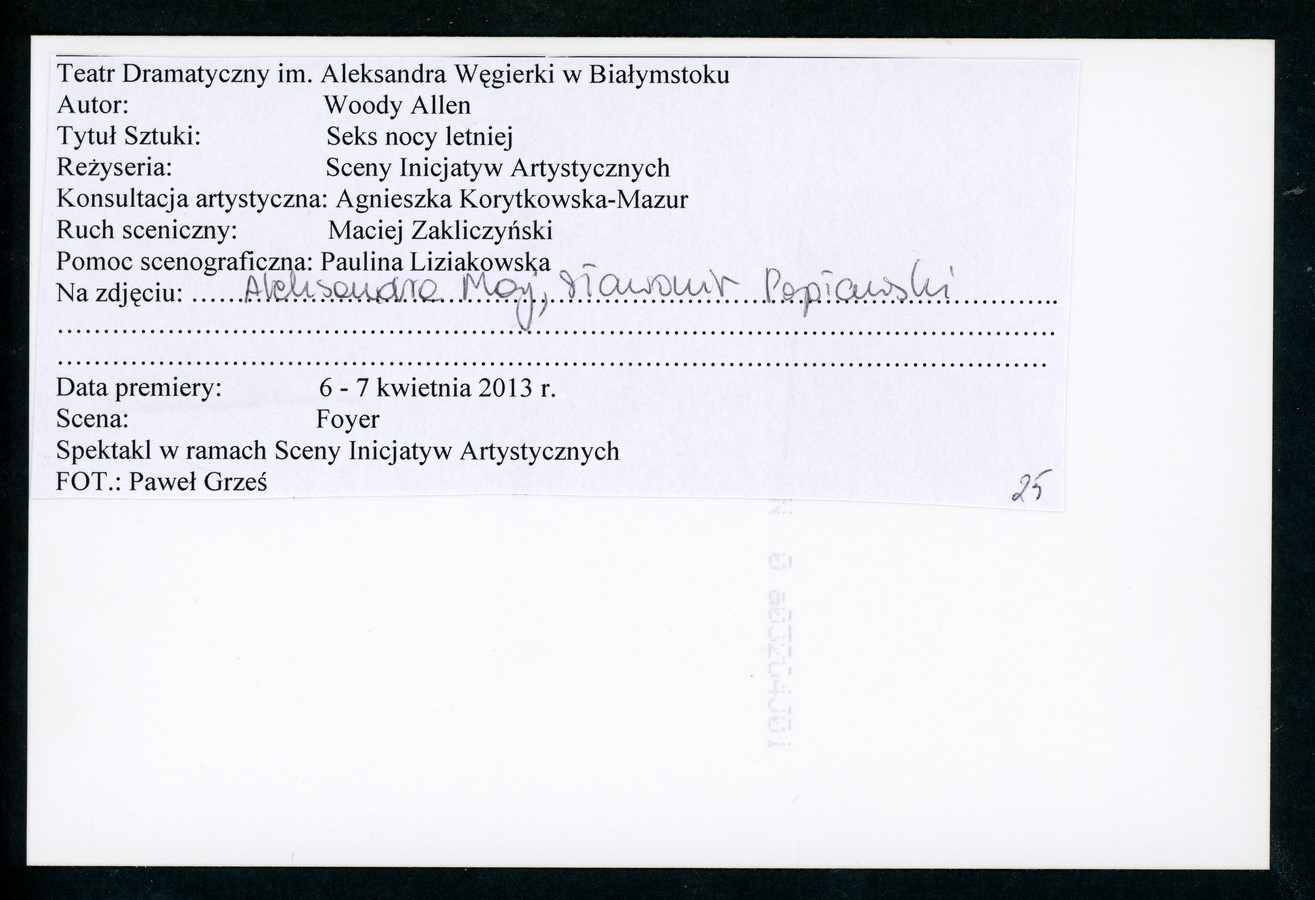 Teatr Dramatyczny im. Aleksandra Węgierki w Białymstoku
Autor: Woody Allen
Tytuł Sztuki: Seks nocy letniej
Reżyseria: Sceny Inicjatyw Artystycznych
Konsultacja artystyczna: Agnieszka Korytkowska-Mazur
Ruch sceniczny: Maciej Zakliczyński
Pomoc scenograficzna: Paulina Liziakowska
Na zdjęciu: Aleksandra Maj, Sławomir Popławski
Data premiery: 6 - 7 kwietnia 2013 r.
Scena: Foyer
Spektakl w ramach Sceny Inicjatyw Artystycznych
FOT.: Paweł Grześ
25